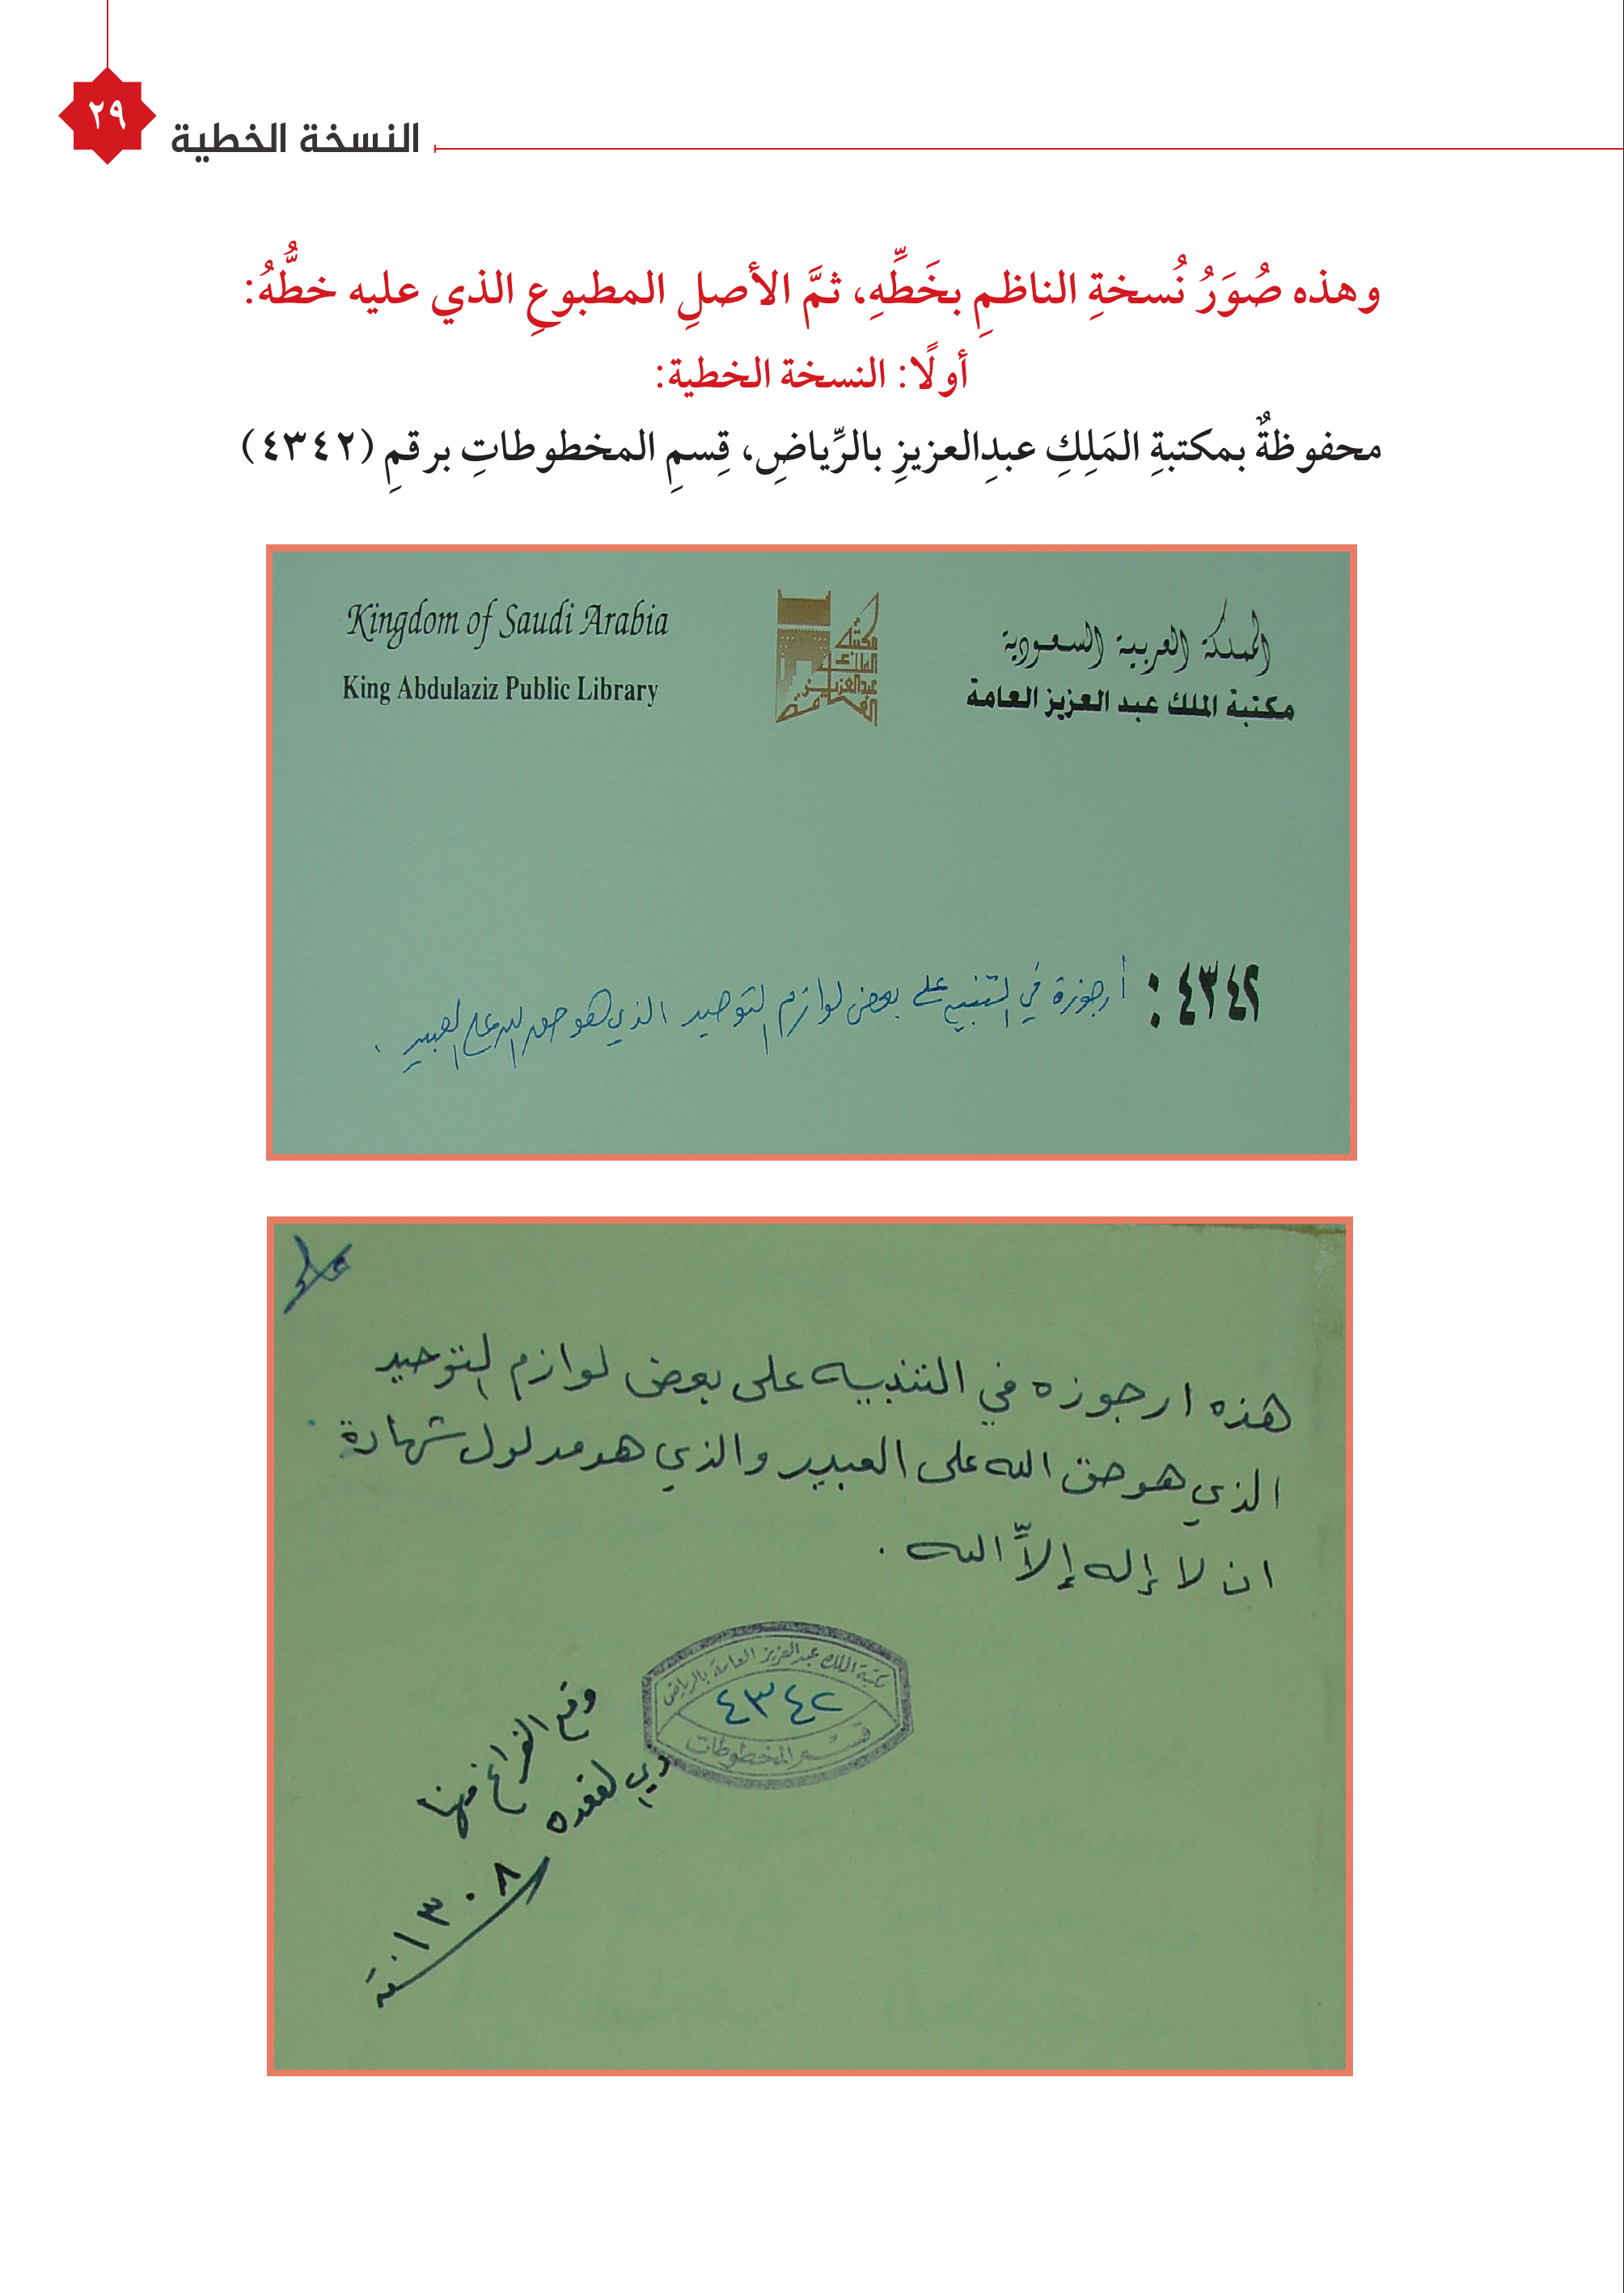 ٢٩
النسخة الخطية
وهذه صُوَرُ نُسخةِ الناظمِ بخَطِّهِ، ثمَّ الأصلِ المطبوعِ الذي عليه خطُّهُ:
أولًا: النسخة الخطية:
محفوظةٌ بمكتبةِ المَلِكِ عبدِالعزيزِ بالرِّياضِ، قِسمِ المخطوطاتِ برقمِ (٤٣٤٢)
المملكة العربية السعودية
مكتبة الملك عبد العزيز العامة
مكتبة
الملك
عبدالعزيز
العامة
Kingdom of Saudi Arabia
King Abdulaziz Public Library
٤٣٤٢ : أرجوزة في التنبيه على بعض لوازم التوحيد الذي هو حق الله على العبيد .
هذه ارجوزه في التنبيه على بعض لوازم التوحيد
الذي هو حق الله على العبيد والذي هو مدلول شهادة
ان لا إله إلاَّ الله .
مكتبة الملك عبدالعزيز العامة بالرياض
٤٣٤٢
قسم المخطوطات
وقع الفراغ منها
القعده
١٣٠٨
سنة